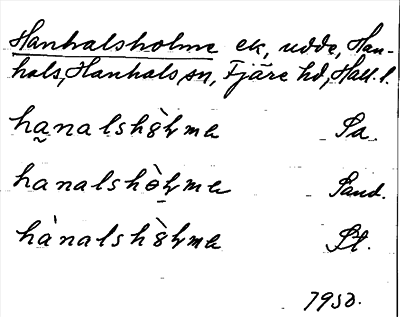 Hanhalsholme ek, udde, Han-
hals, Hanhals sn, Fjäre hd, Hall. l.
ha̰nalshò̤ɫmɐ Sa.
hanalshò̱ɫmɐ Sand.
hànalshò̤ɫmɐ St.